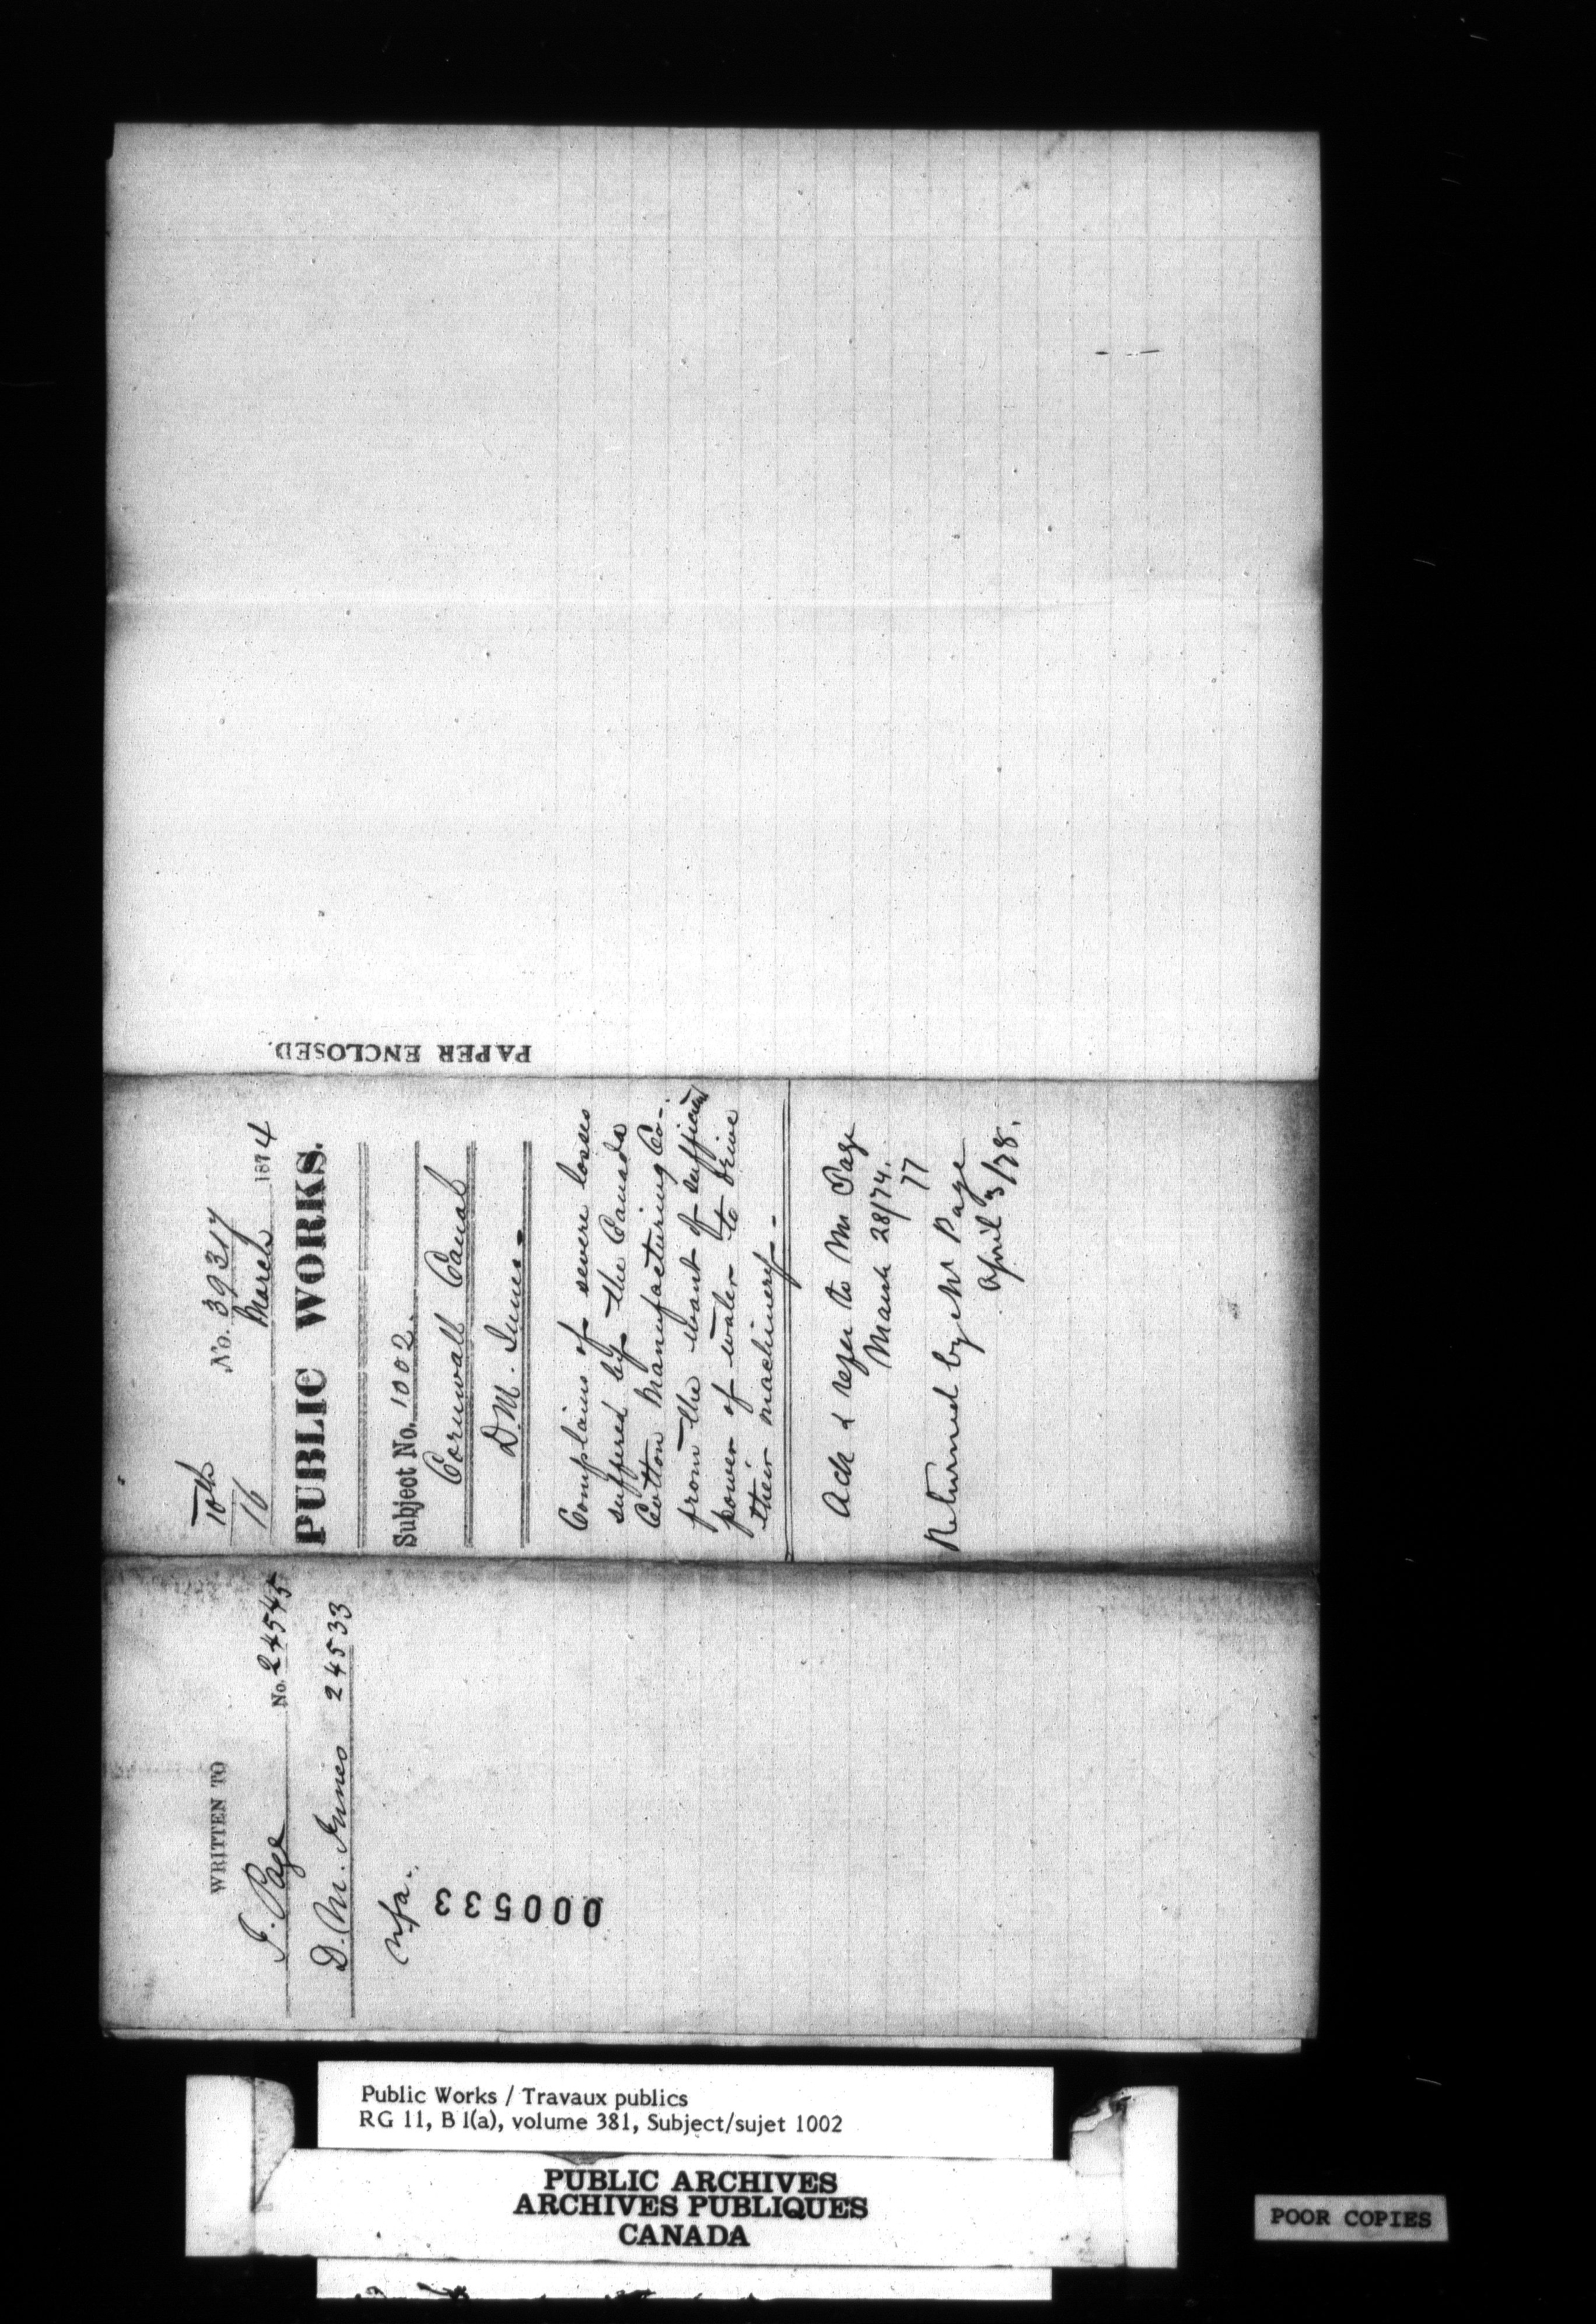 PAPER ENCLOSED.
10th
16
No. 39317
March 1874
PUBLIC WORKS.
Subject No. 1002.
Cornwall Canal
D. M. Innes.
Complains of severe losses
suffered by the Canada
Cotton Manufacturing Co-.
from the want of sufficient
power of water to drive
their machinery.
Ack & refer to Mr Page
March 28/74.
77
Returned by Mr Page
April 3/78.
WRITTEN TO
J. Page No. 24545
D. M. Innes 24533
nfa.
000533
Public Works / Travaux publics
RG 11, B 1(a), volume 381, Subject/sujet 1002
PUBLIC ARCHIVES
ARCHIVES PUBLIQUES
CANADA
POOR COPIES